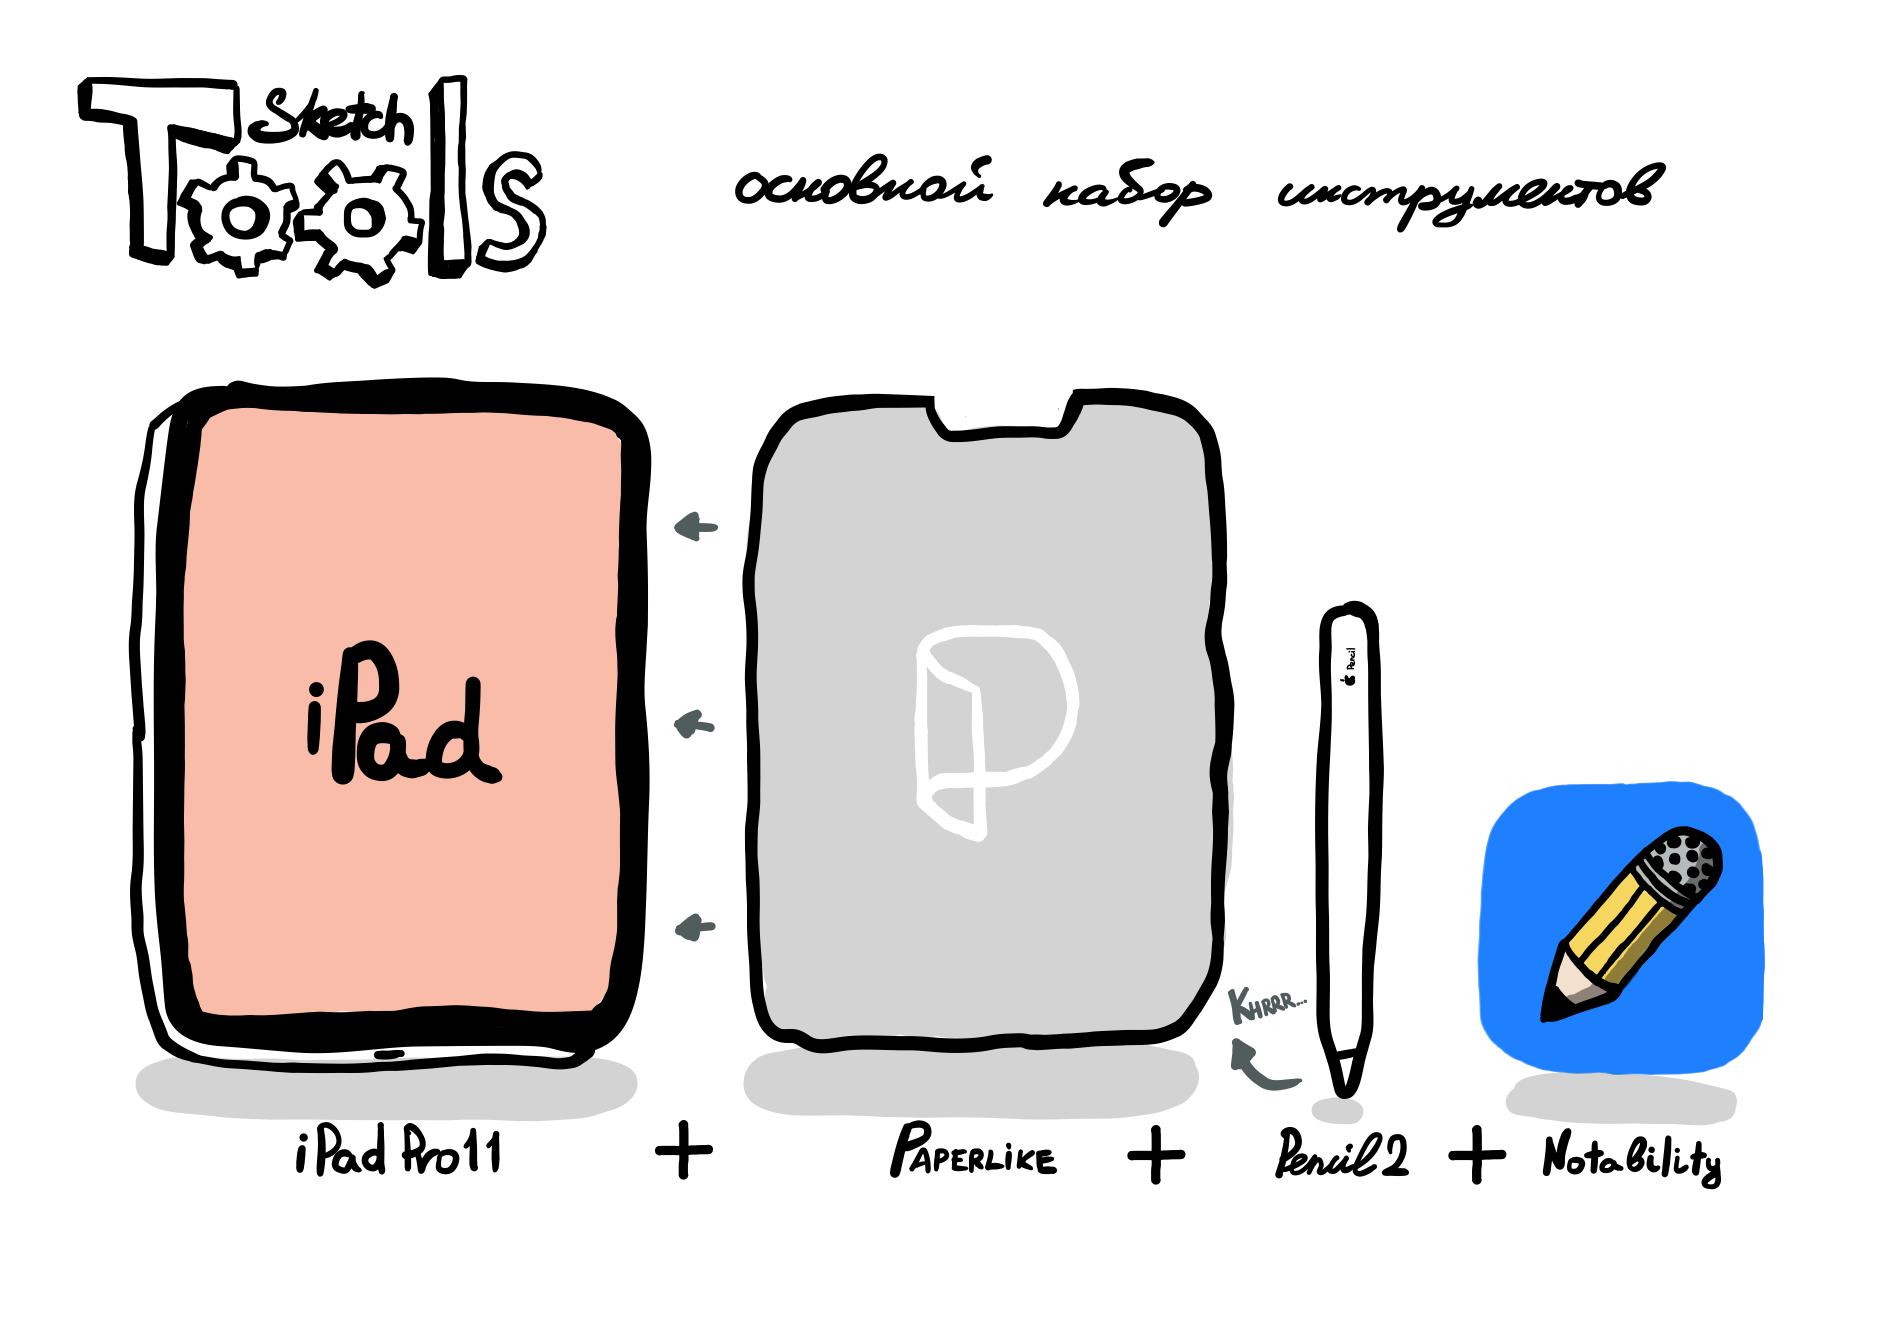 Sketch
Tools
основной набор инструментов
iPad
P
Pencil
KHRRR...
iPad Pro 11 + PAPERLIKE + Pencil 2 + Notability